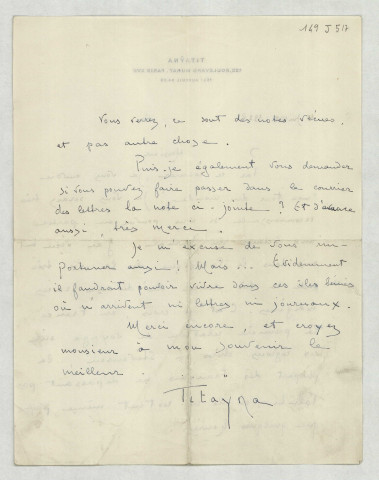 149 J 517
TITAŸNA
Vous verrez, ce sont des notes vécues,
et pas autre chose.
Puis-je également vous demander
si vous pouvez faire passer dans le courrier
des lettres la note ci-jointe ? Et d'avance
aussi, très merci.
Je m'excuse de vous im-
portuner ainsi ! Mais... Evidemment
il faudrait pouvoir vivre dans ces îles
où n'arrivent ni lettres ni journaux.
Merci encore, et croyez
monsieur à mon souvenir le
meilleur.
Titaÿna